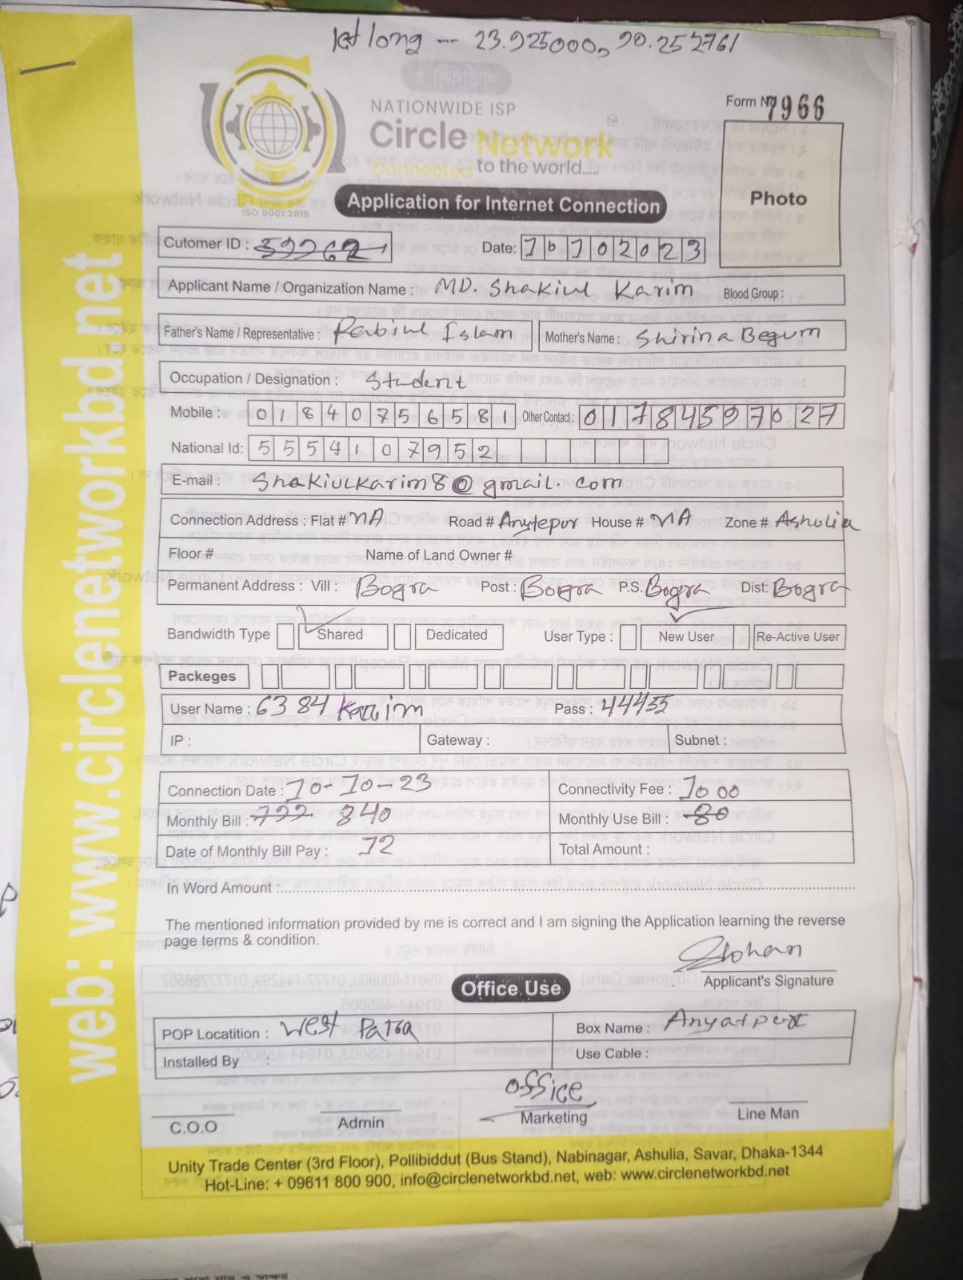 lat long -- 23.925000, 90.252761
NATIONWIDE ISP
Circle Network
Connected to the world.....
ISO 9001:2015
Form No 7966
Photo
Application for Internet Connection
Cutomer ID : 59262
Date: 10102023
Applicant Name / Organization Name : MD. Shakiul Karim Blood Group :
Father's Name / Representative : Rabiul Islam Mother's Name : Shirina Begum
Occupation / Designation : Student
Mobile : 01840756581 Other Contact : 01784597027
National Id: 5554107952
E-mail : Shakiulkarim8@gmail.com
Connection Address : Flat # NA Road # Anytepur House # NA Zone # Ashulia
Floor # Name of Land Owner #
Permanent Address : Vill : Bogra Post : Bogra P.S. Bogra Dist: Bogra
Bandwidth Type Shared Dedicated User Type : New User Re-Active User
Packeges
User Name : 6384karim Pass : 44455
IP : Gateway : Subnet :
Connection Date : 10-10-23 Connectivity Fee : 1000
Monthly Bill : 722 840 Monthly Use Bill : 80
Date of Monthly Bill Pay : 12 Total Amount :
In Word Amount :
The mentioned information provided by me is correct and I am signing the Application learning the reverse
page terms & condition.
Applicant's Signature
Office Use
POP Locatition : West Para Box Name : Anyatpur
Installed By : Use Cable :
office
C.O.O Admin Marketing Line Man
Unity Trade Center (3rd Floor), Pollibiddut (Bus Stand), Nabinagar, Ashulia, Savar, Dhaka-1344
Hot-Line: + 09611 800 900, info@circlenetworkbd.net, web: www.circlenetworkbd.net
web: www.circlenetworkbd.net